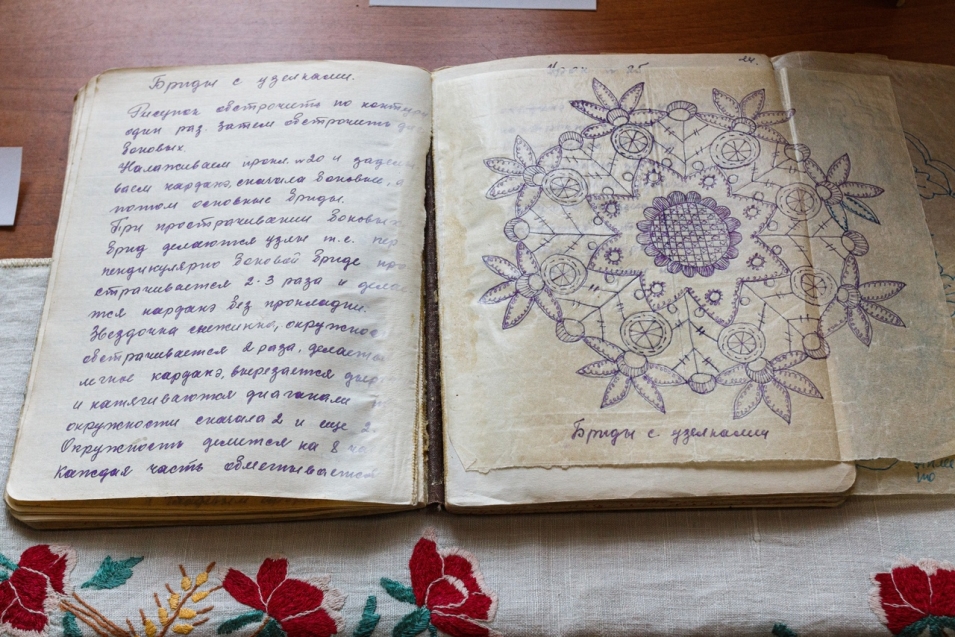 Бриды с узелками.
Рисунок обстрочить по контуру
один раз. затем обстрочить до
боковых.
Налаживаем прокл. №20 и задел
ваем кардану, сначала боковые, а
потом основные бриды.
При прострачивании боковых
брид делаются узлы т.е. пер
пендикулярно боковой бриде про
страчивается 2-3 раза и дела
тся кардана без прокладки.
Звездочка снежинка, окружнос
обстрачивается 2 раза, делается
легкое кардана, вырезается
и натягиваются диагонали
окружности сначала 2 и еще 2
Окружность делится на 8 ча
каждая часть обметывается
24.
Бриды с узелками